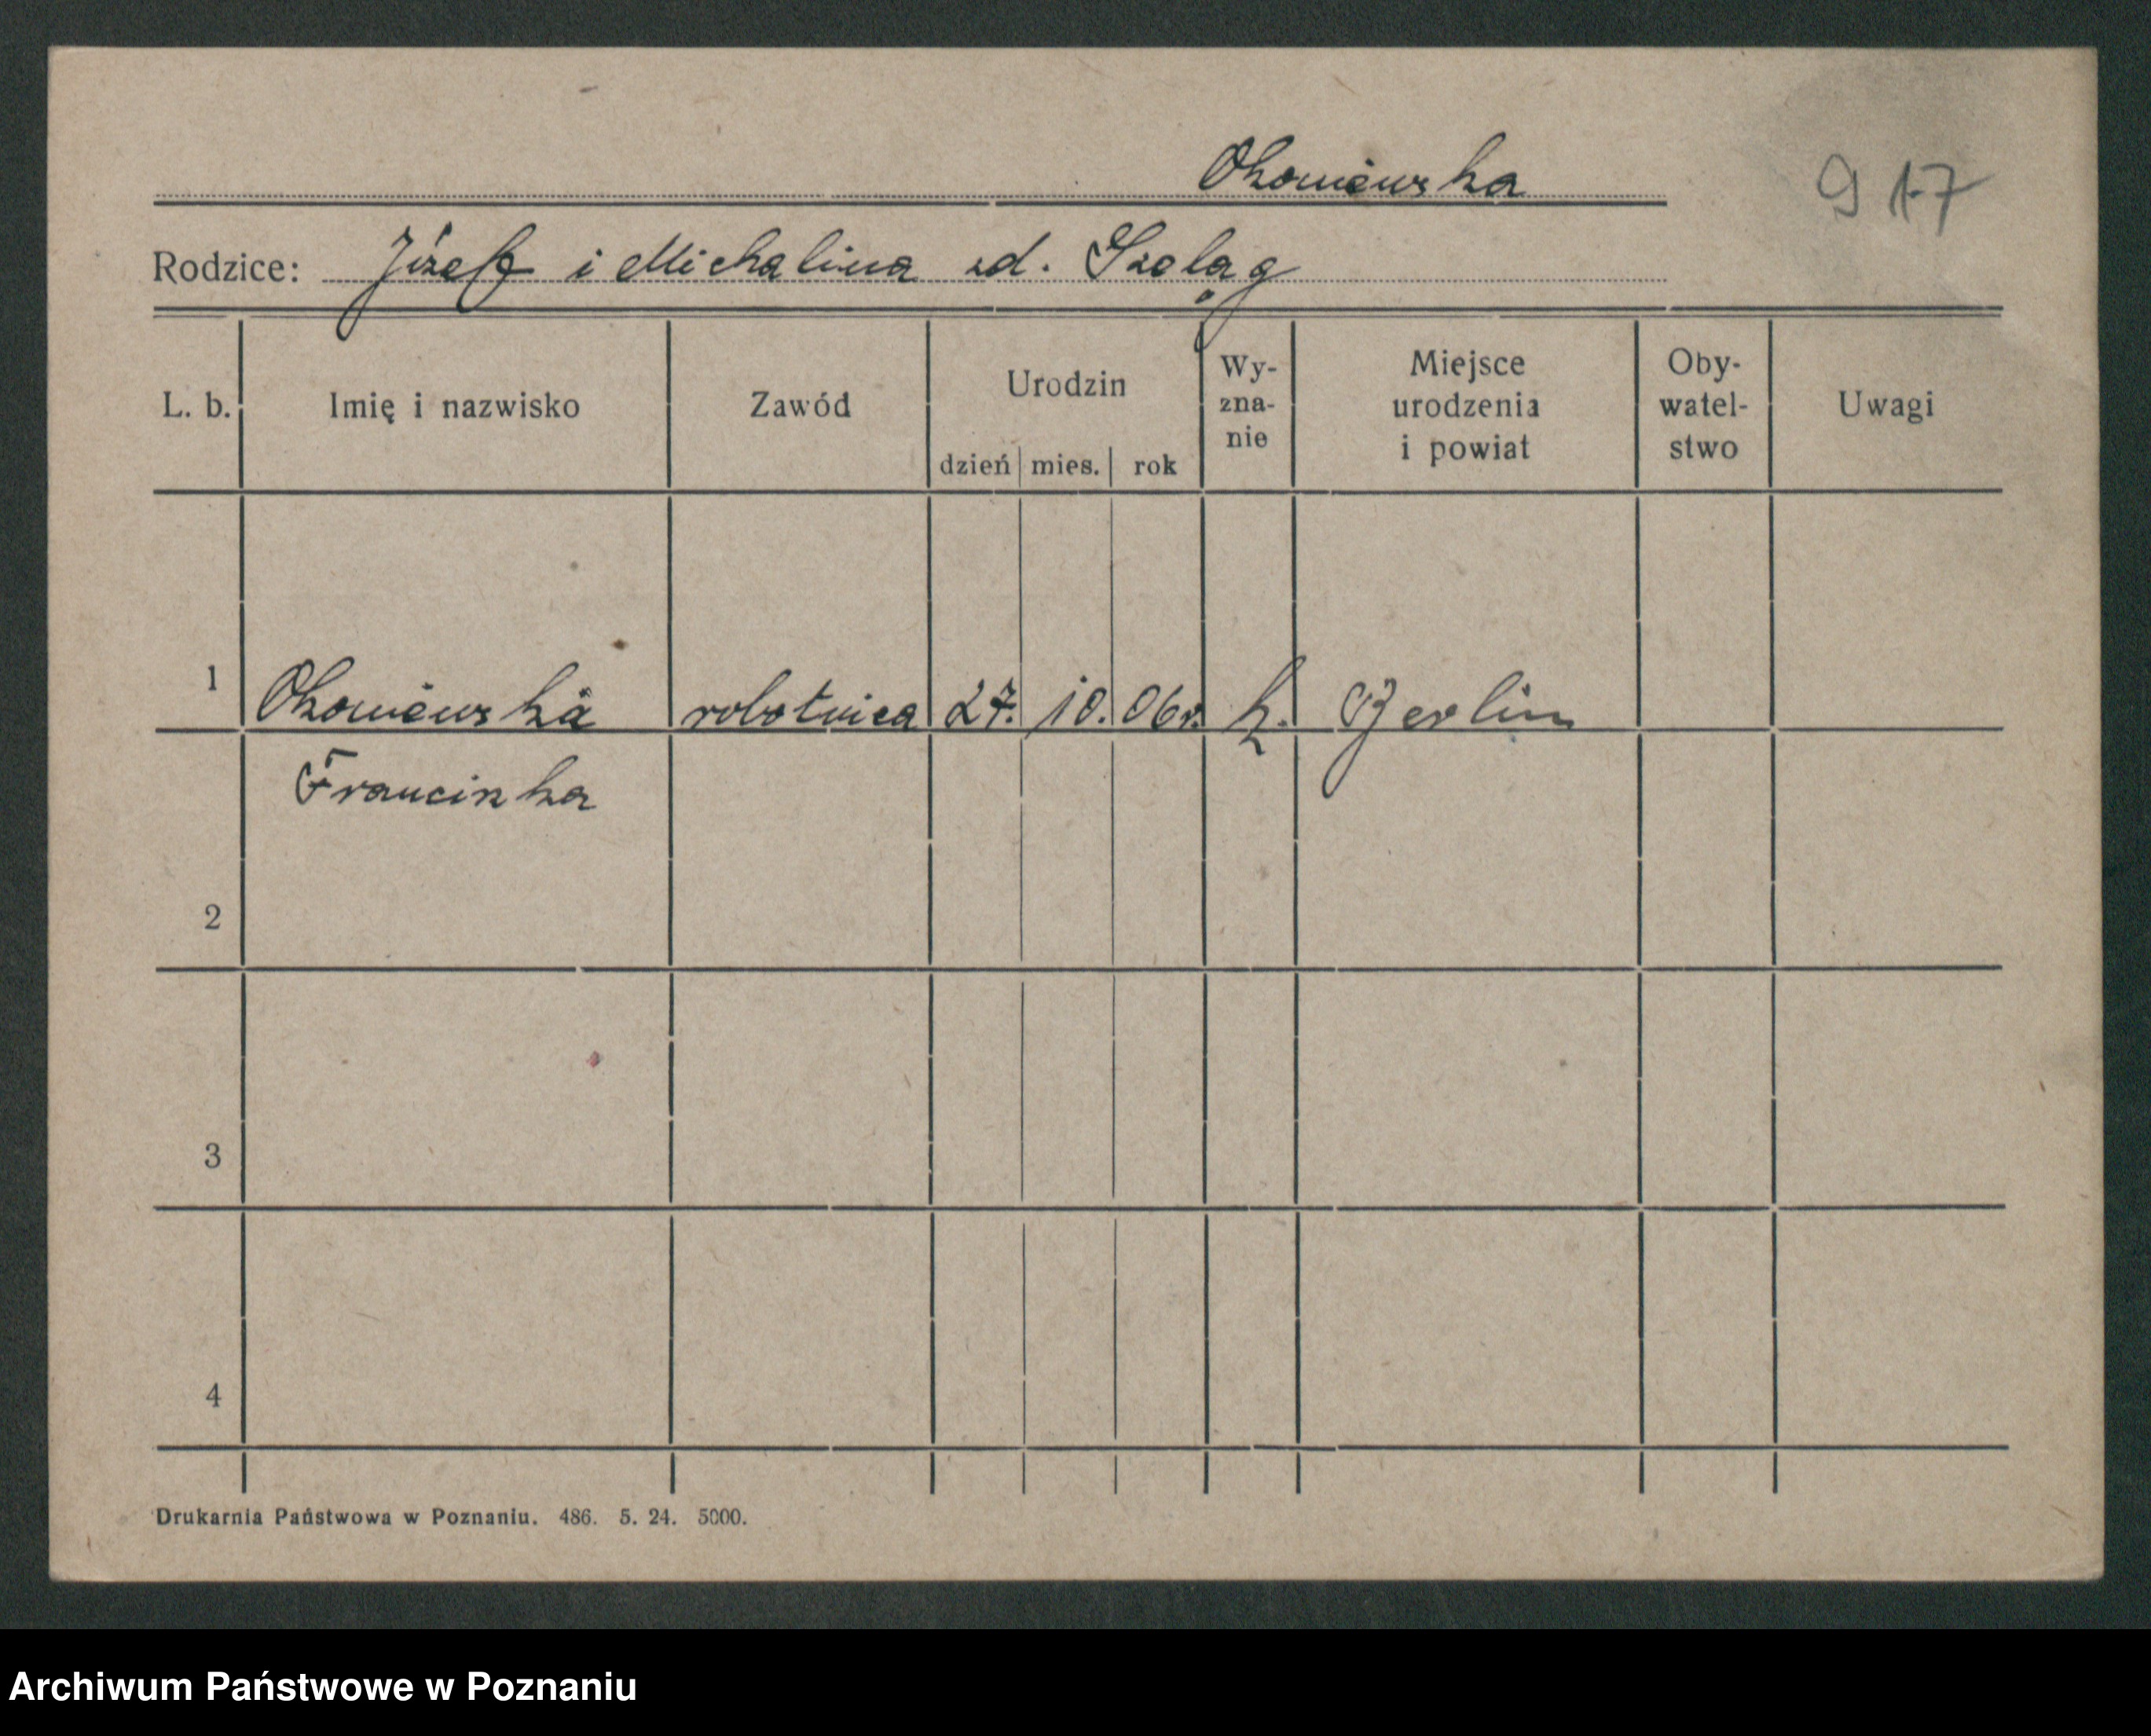 Okoniewska
917
Rodzice: Józef i Michalina zd. Szeląg
L. b. Imię i nazwisko Zawód Urodzin dzień mies. rok Wy-zna-nie Miejsce urodzenia i powiat Oby-watel-stwo Uwagi
1 Okoniewska robotnica 27. 10. 06r. k. Berlin
Franciszka
2
3
4
Drukarnia Państwowa w Poznaniu. 486. 5. 24. 5000.
Archiwum Państwowe w Poznaniu